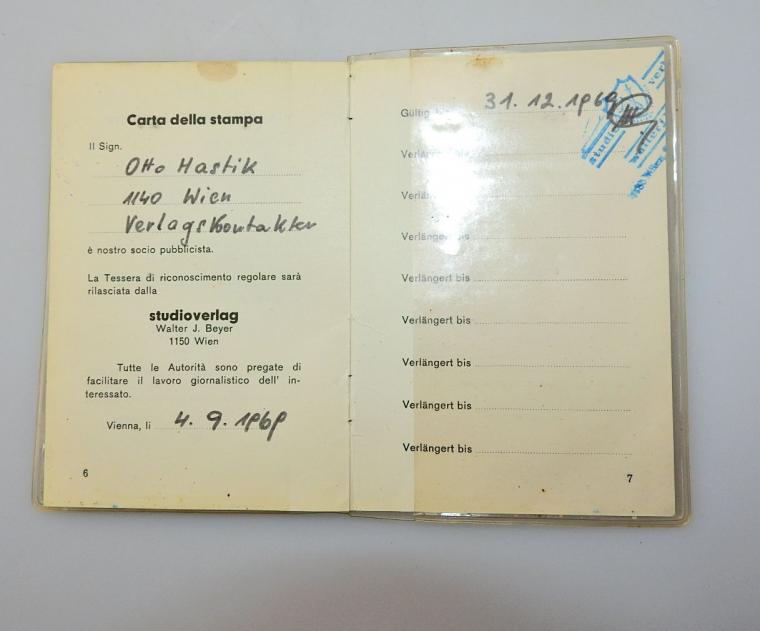 Carta della stampa
Il Sign.
Otto Hastik
1140 Wien
Verlagskontakter
è nostro socio pubblicista.
La Tessera di riconoscimento regolare sarà
rilasciata dalla
studioverlag
Walter J. Beyer
1150 Wien
Tutte le Autorità sono pregate di
facilitare il lavoro giornalistico dell' in-
teressato.
Vienna, li 4. 9. 1969
6
Gültig 31. 12. 1969
Verlängert bis
Verlängert bis
Verlängert bis
Verlängert bis
Verlängert bis
Verlängert bis
Verlängert bis
Verlängert bis
7